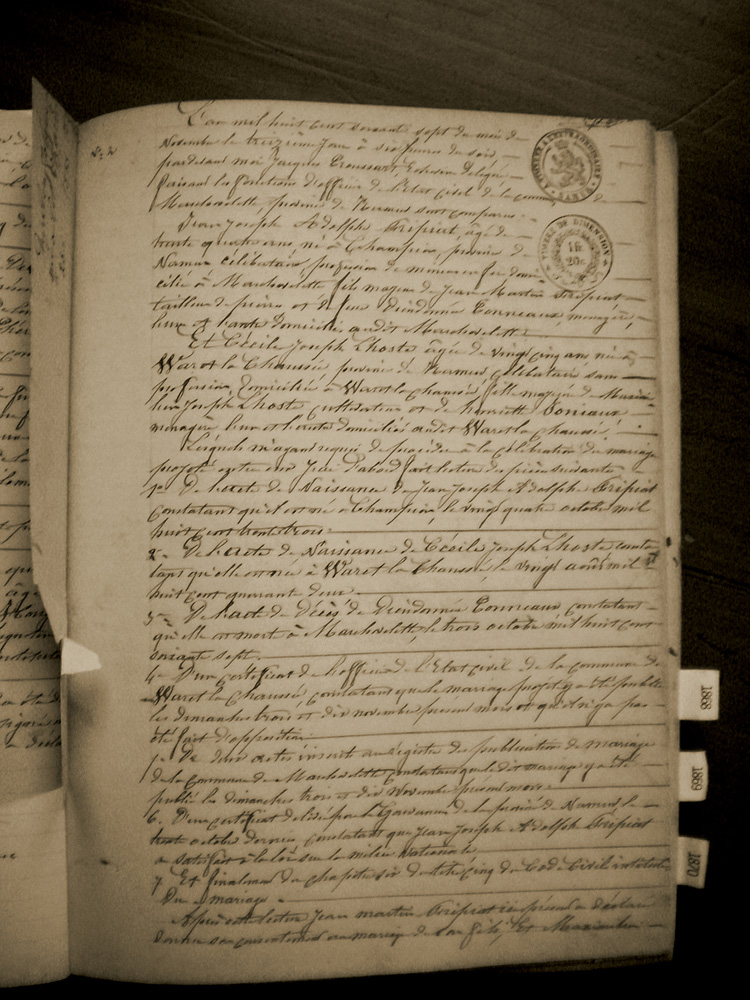 L'an mil huit cent soixante sept du mois de
Novembre le treizième jour à six heures du soir
pardevant moi Jacques Echevin délégué
faisant les fonctions d'officier de l'état civil de la commune de
Marchovelette, province de Namur sont comparus:
Jean Joseph Adolphe Fripiat, âgé de
trente quatre ans, né à Champion, province de
Namur célibataire, profession de mineur en fer domi-
cilié à Marchovelette fils majeur de Jean Martin Fripiat
tailleur de pierres et de feue Dieudonnée Tonneaux, ménagère,
domiciliés audit Marchovelette.
Et Cécile Joseph Lhoste âgée de vingt cinq ans née à
Waret la Chaussée province de Namur, célibataire sans
profession, domiciliée à Waret la Chaussée, fille majeure de Maximi-
lien Joseph Lhoste cultivateur et de henriette
ménagère domiciliés audit Waret la Chaussée.
Lesquels m'ayant requis de procéder à la célébration du mariage
projeté entre eux j'ai d'abord fait lecture des pièces suivantes
1° De l'acte de Naissance de Jean Joseph Adolphe Fripiat
constatant qu'il est né à Champion, le vingt quatre octobre mil
huit cent trente trois.
2° De l'acte de Naissance de Cécile Joseph Lhoste consta-
tant qu'elle est née à Waret la Chaussée, le vingt août mil
huit cent quarante deux.
3° De l'acte de Décès de Dieudonnée Tonneaux, constatant
qu'elle est morte à Marchovelette, le trois octobre mil huit cent
soixante sept.
4° D'un certificat de l'officier de l'Etat civil de la commune de
Waret la Chaussée, constatant que le mariage projeté y a été publié
les dimanches trois et dix novembre présent mois et qu'il n'y a pas
été fait d'opposition.
5° De deux actes inscrits au registre des publications de mariage
de la commune de Marchovelette constatant que le dit mariage y a été
publié les dimanches trois et dix Novembre présent mois.
6. D'un certificat délivré par le Gouverneur de la province de Namur le
octobre dernier, constatant que Jean Joseph Adolphe Fripiat
a satisfait à la loi sur la milice Nationale.
7 Et finalement du chapitre six du titre cinq du Code Civil intitulé
Du mariage.
Après cette lecture Jean martin Fripiat ici présent a déclaré
donner son consentement au mariage de son fils, Et Maximilien
NAMUR
TIMBRE DE DIMENSION
1868
1869
1870